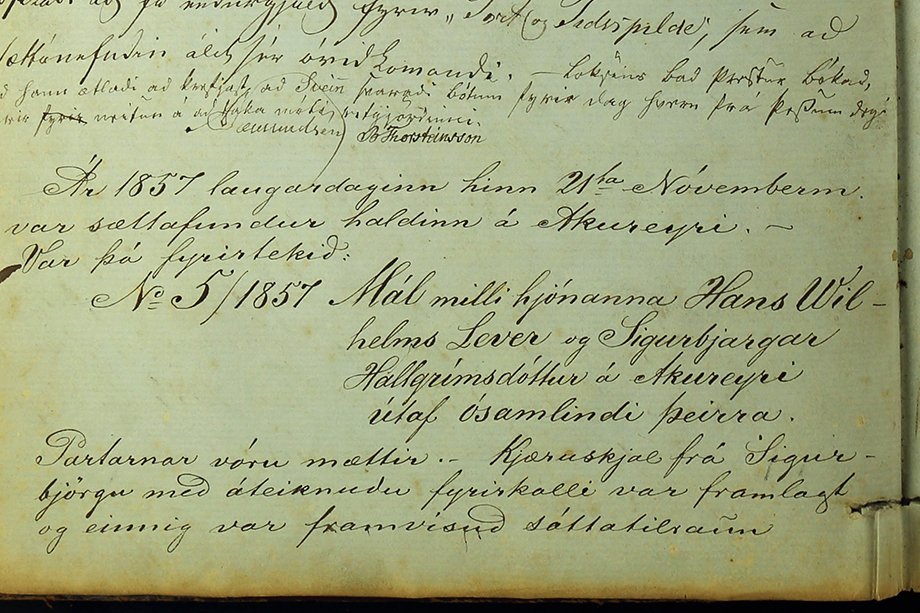 að fá endurgjald fyrir „Tort og Tidsspilde", sem að
sættanefndin áleit sér óviðkomandi. — Loksins bað Prestur bókað,
að hann ætlaði að krefjast að Svein svaraði bótum fyrir dag hvern frá þessum degi
fyrir neitun á að taka móti
Sæmundsen) B Thorsteinsson
Ár 1857 laugardaginn hinn 21ta Nóvemberm.
var sættafundur haldinn á Akureyri. —
Var þá fyrirtekið:
No 5/1857 Mál milli hjónanna Hans Wil-
helms Lever og Sigurbjargar
Hallgrímsdóttur á Akureyri
útaf ósamlindi þeirra.
Partarnar vóru mættir. — Kjæruskjal frá Sigur-
björgu með áteiknuðu fyrirkalli var framlagt
og einnig var framvísuð sáttatilraun